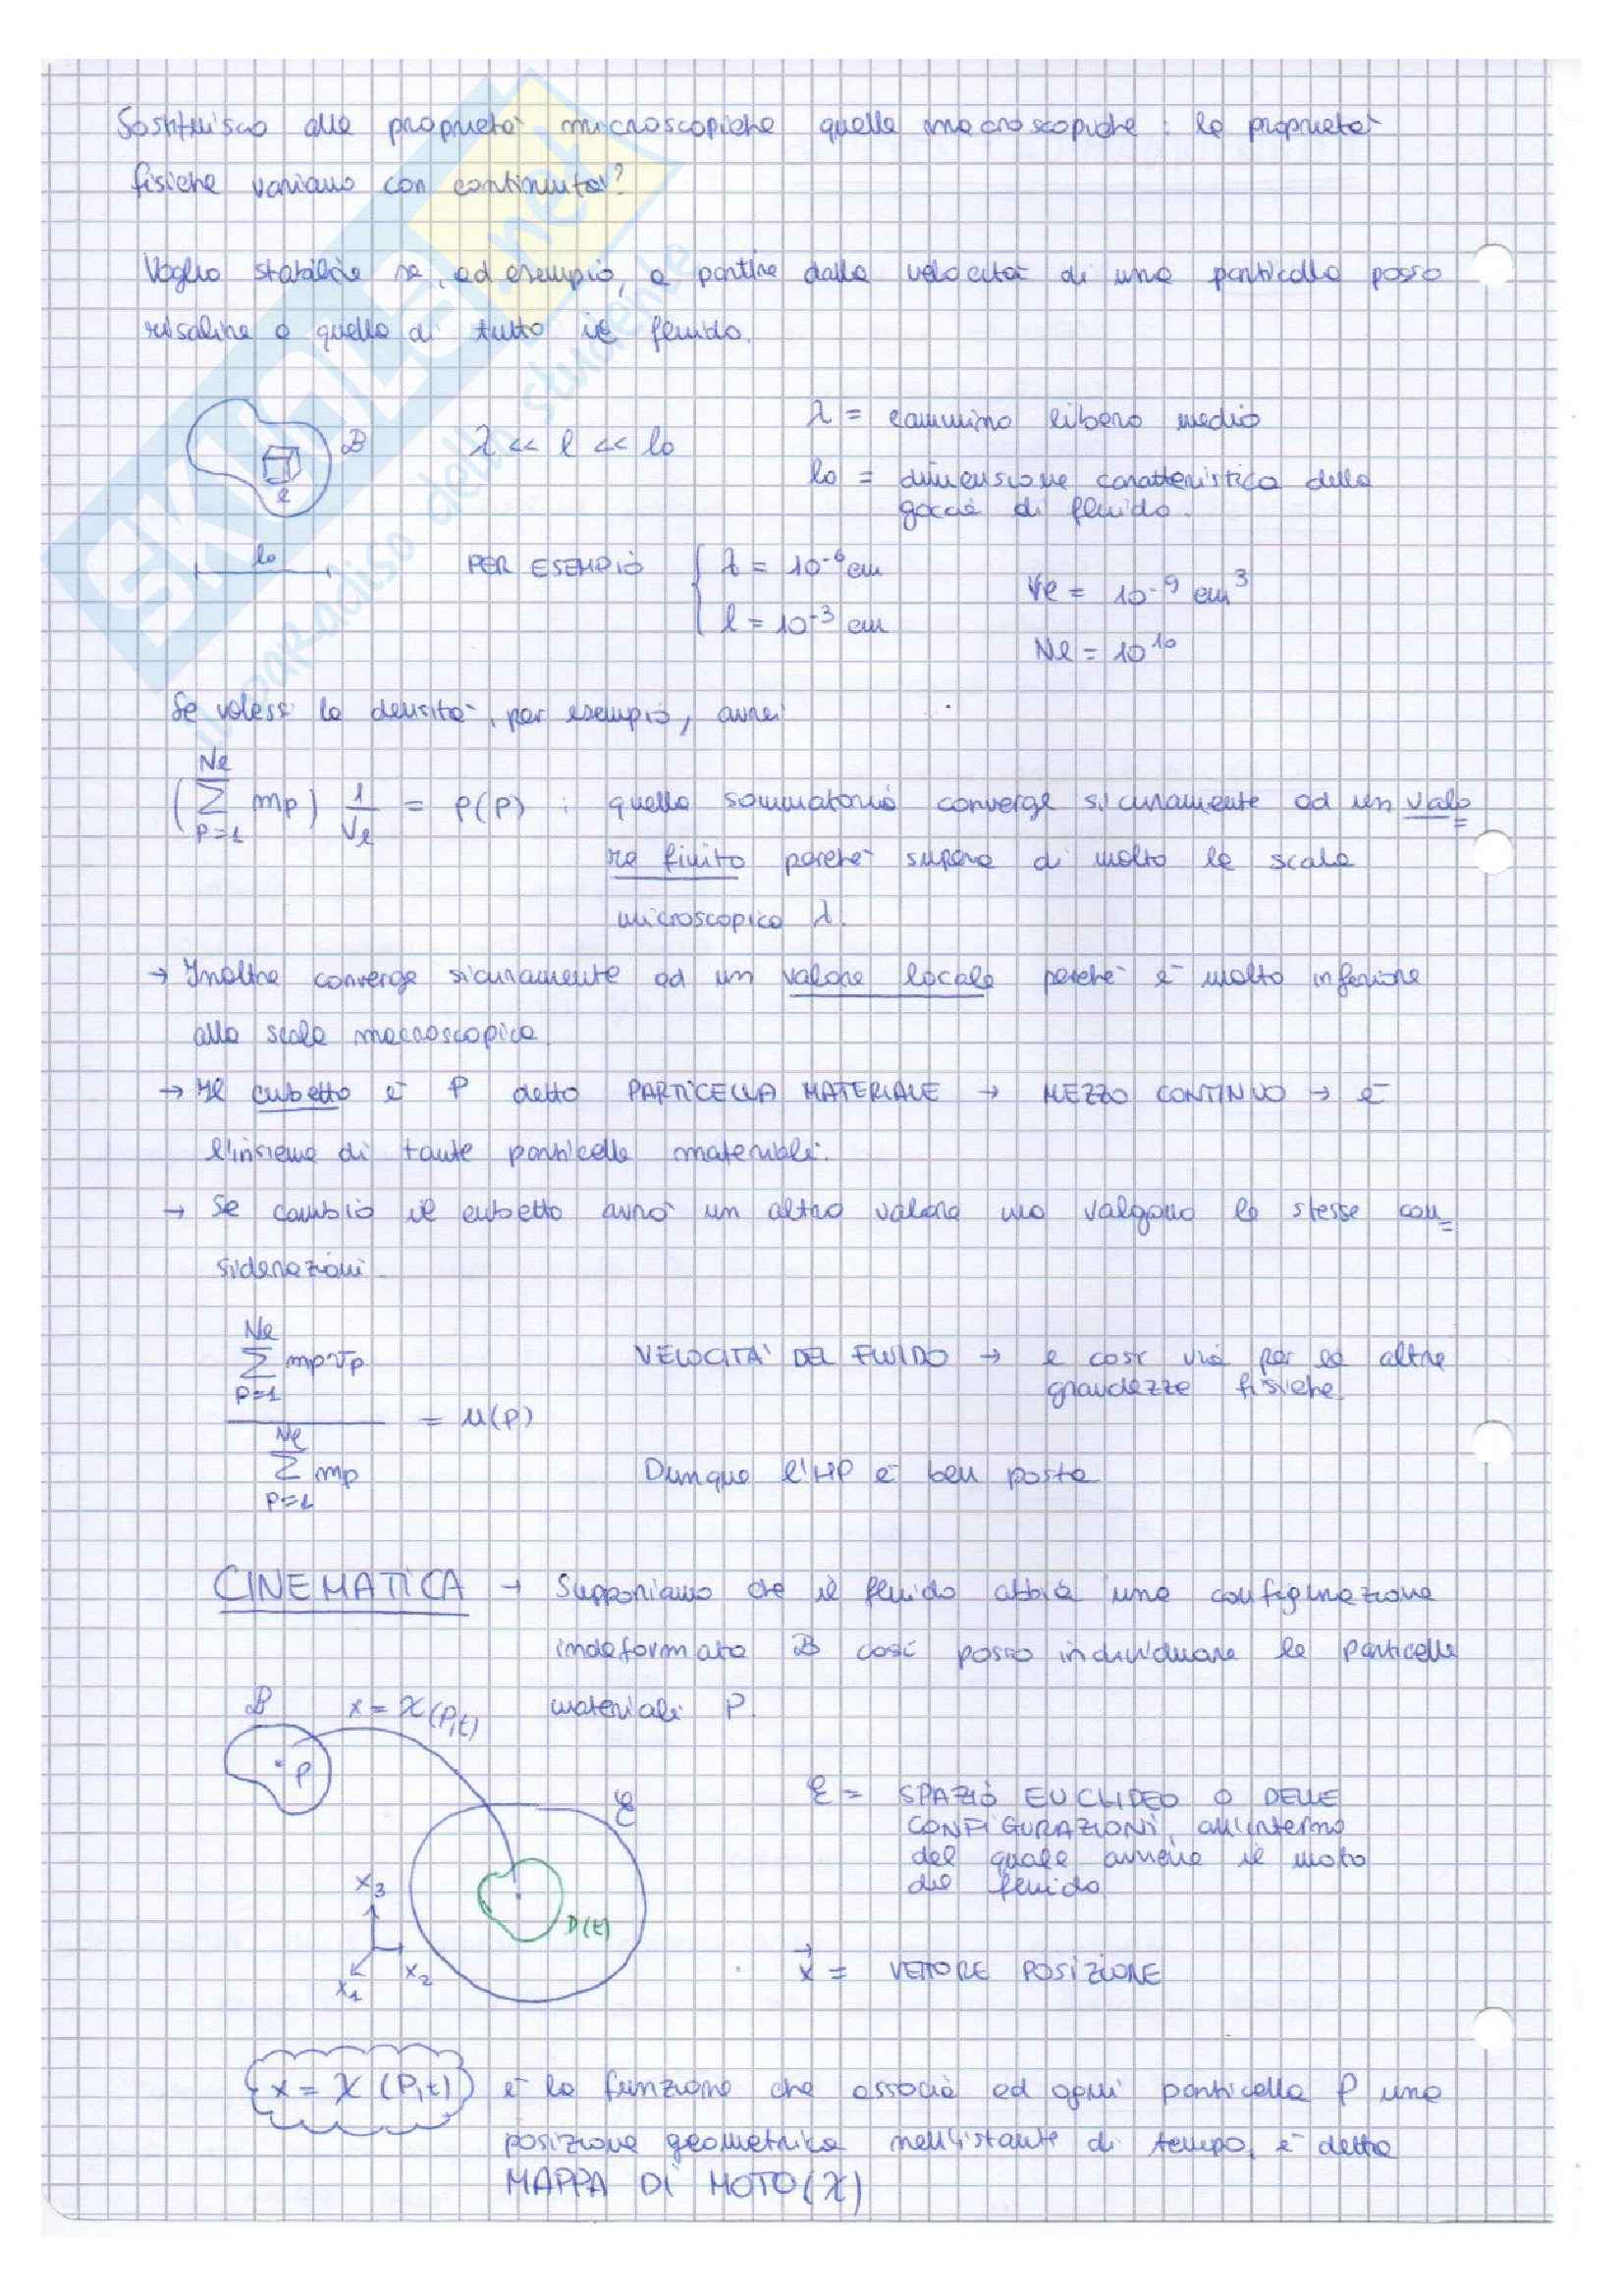 Sostituisco alle proprietà microscopiche quelle macroscopiche: le proprietà
fisiche variano con continuità?
Voglio stabilire se, ad esempio, a partire dalla velocità di una particella posso
risalire a quella di tutto il fluido.
B λ << l << lo
λ = cammino libero medio
lo = dimensione caratteristica della
goccia di fluido.
l
lo
PER ESEMPIO { λ = 10^-6 cm
l = 10^-3 cm
Vl = 10^-9 cm^3
Nl = 10^10
Se volessi la densità, per esempio, avrei
(Σ_{P=1}^{Nl} mp) 1/Vl = ρ(P) ; quella sommatoria converge sicuramente ad un valo=
re finito perché supera di molto la scala
microscopica λ.
→ Inoltre converge sicuramente ad un valore locale perché è molto inferiore
alla scala macroscopica.
→ Il cubetto è P detto PARTICELLA MATERIALE → MEZZO CONTINUO → è
l'insieme di tante particelle materiali.
→ Se cambio il cubetto avrò un altro valore ma valgono le stesse con=
siderazioni.
Σ_{P=1}^{Nl} mp vp / Σ_{P=1}^{Nl} mp = u(P)
VELOCITA' DEL FLUIDO → e così via per le altre
grandezze fisiche.
Dunque l'HP è ben posta
CINEMATICA → Supponiamo che il fluido abbia una configurazione
indeformata B così posso individuare le particelle
materiali P.
B x = χ(P,t)
P
ℰ
ℰ = SPAZIO EUCLIDEO O DELLE
CONFIGURAZIONI, all'interno
del quale avviene il moto
del fluido
D(t)
x3
x2
x1
x⃗ = VETTORE POSIZIONE
x = χ (P,t) è la funzione che associa ad ogni particella P una
posizione geometrica nell'istante di tempo, è detta
MAPPA DI MOTO (χ)
SKUOLA.net
il paradiso dello studente